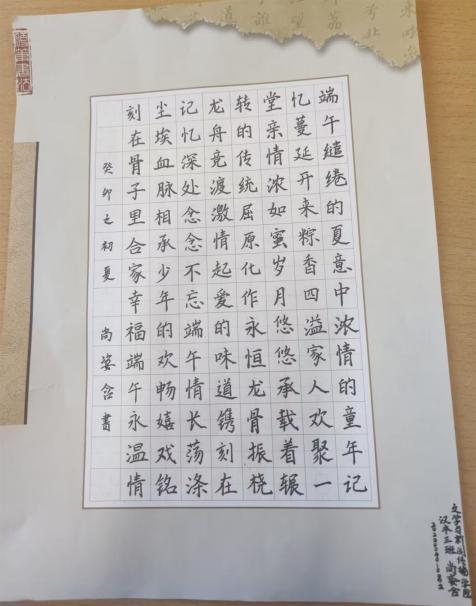 端午缱绻的夏意中浓情的童年记
忆蔓延开来粽香四溢家人欢聚一
堂亲情浓如蜜岁月悠悠承载着辗
转的传统屈原化作永恒龙骨振桡
龙舟竞渡激情起爱的味道镌刻在
记忆深处念念不忘端午情长荡涤
尘埃血脉相承少年的欢畅嬉戏铭
刻在骨子里合家幸福端午永温情
癸卯之初夏 尚姿含书
文学与新闻传播学院
汉本三班 尚姿含